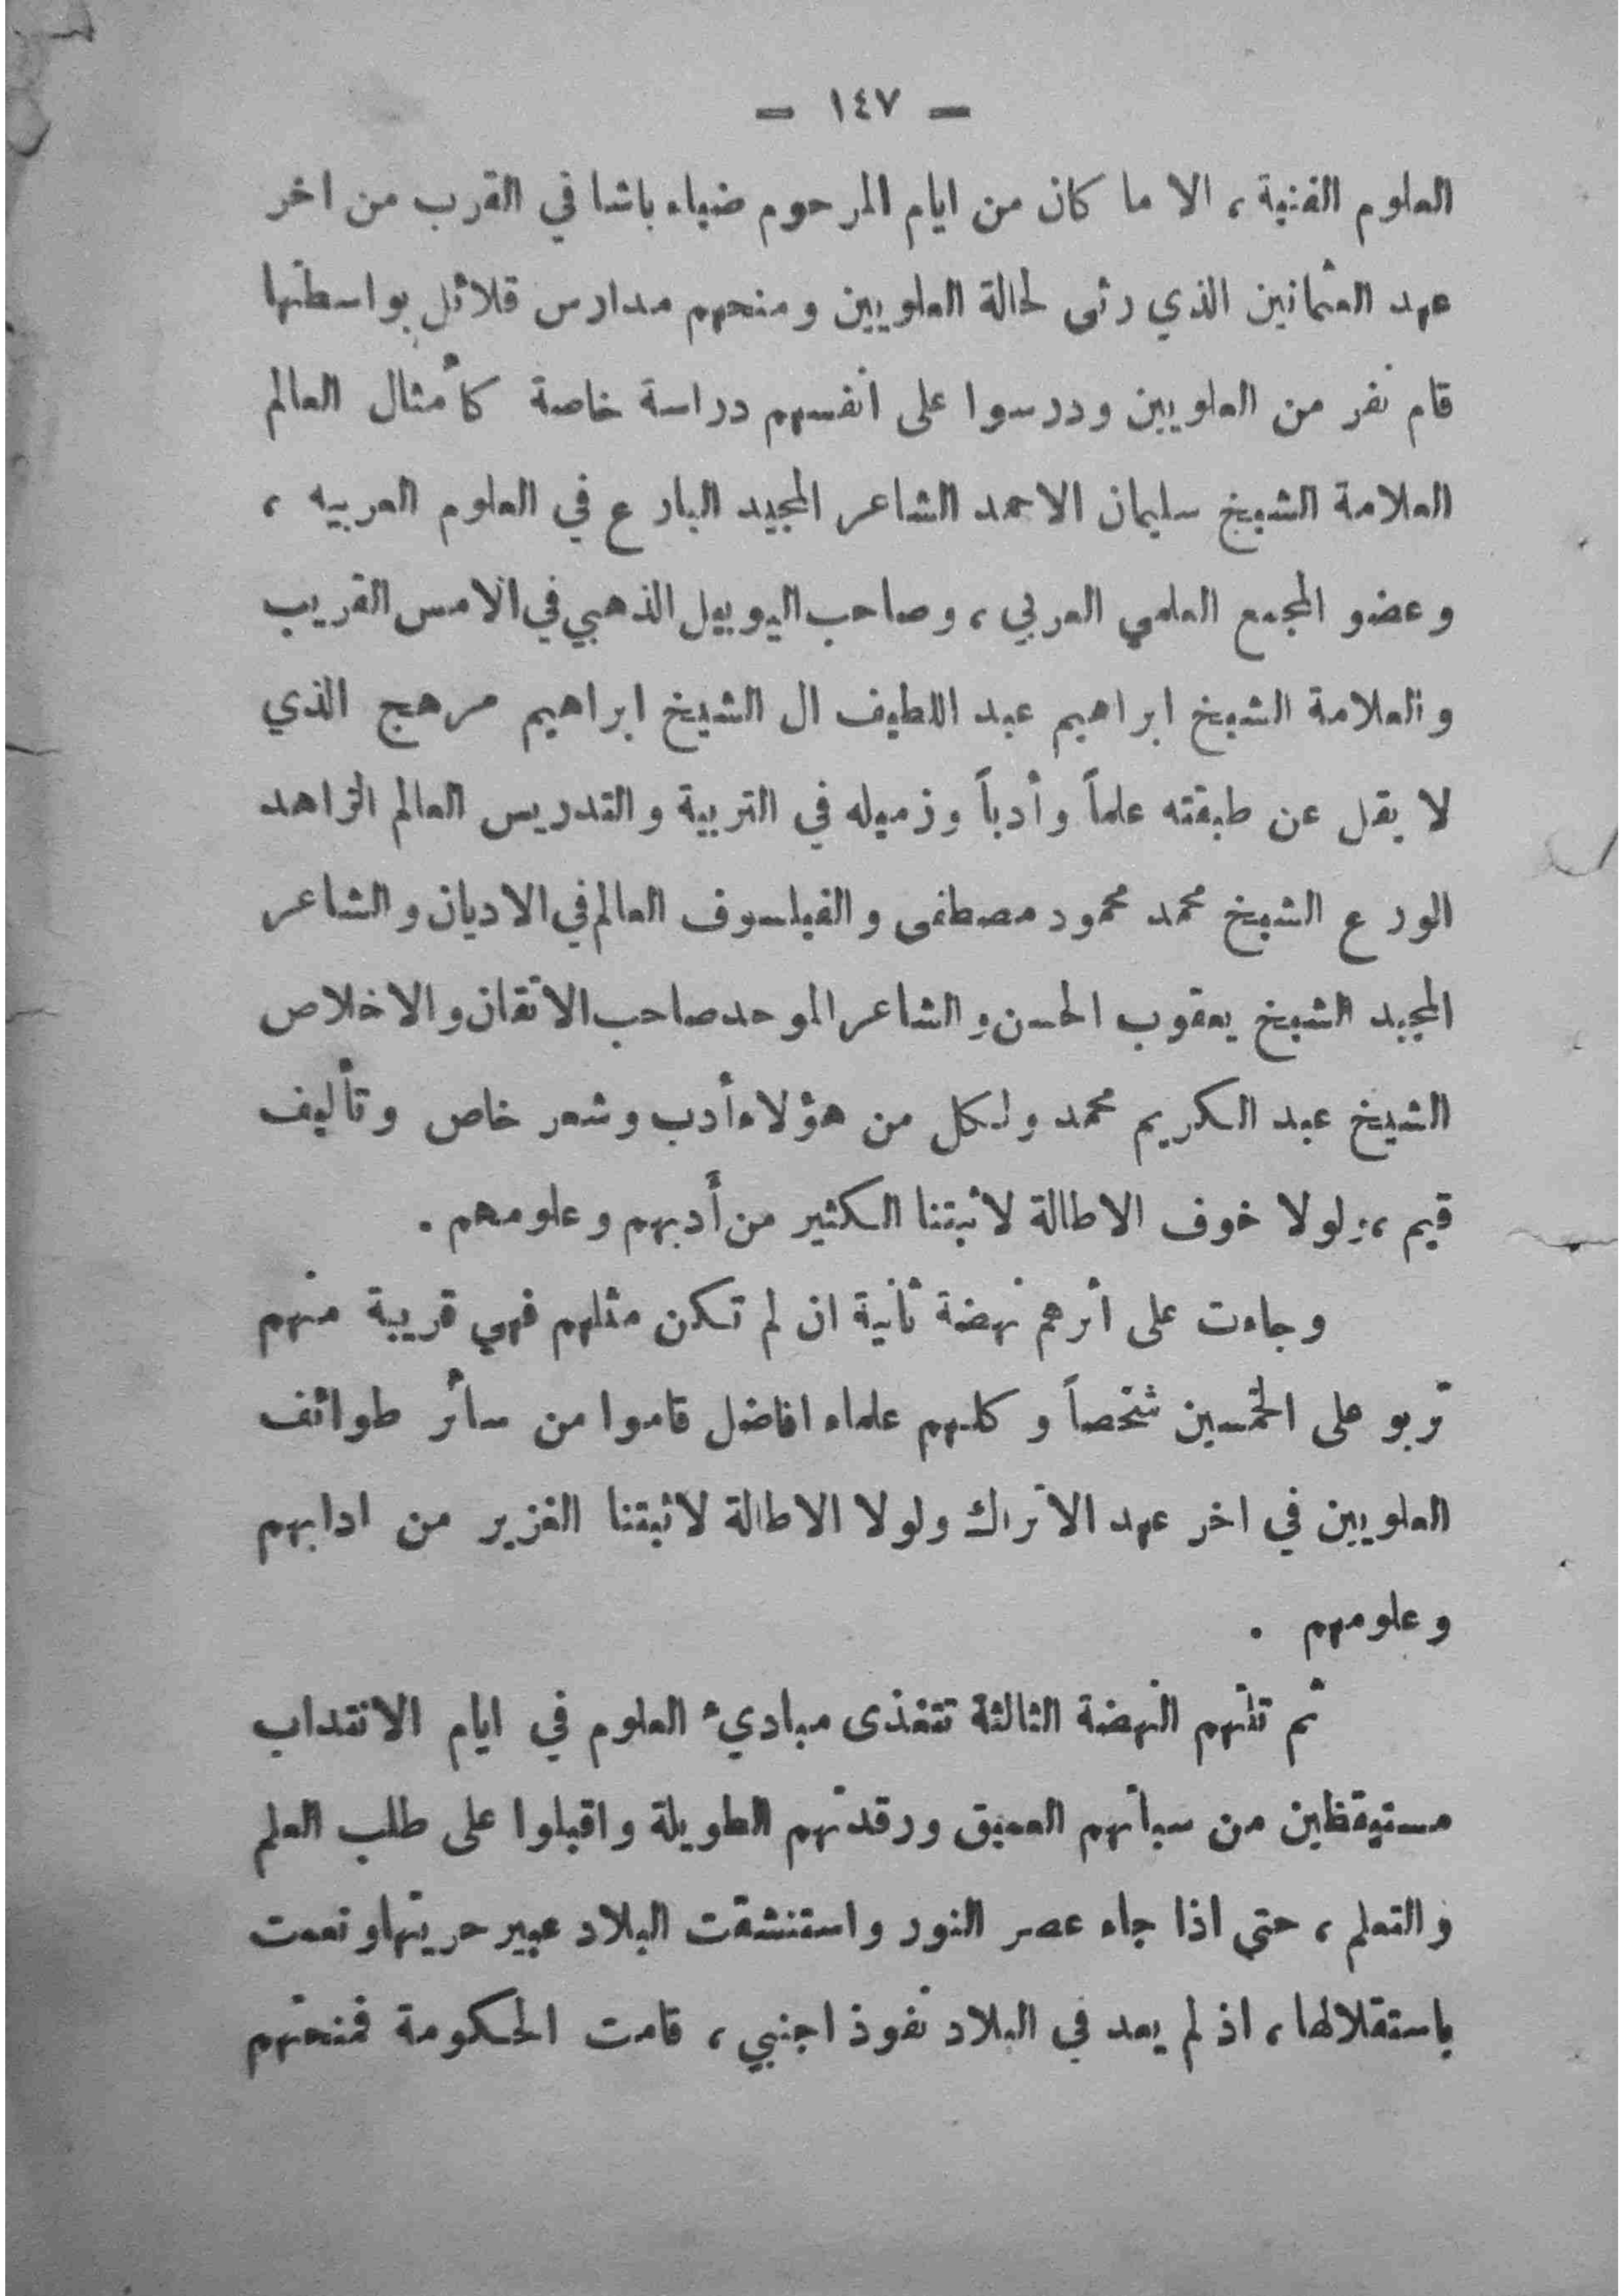 — ١٤٧ —
العلوم الفنية ، الا ما كان من ايام المرحوم ضياء باشا في القرب من اخر
عهد العثمانيين الذي رثى لحالة العلويين ومنحهم مدارس قلائل بواسطتها
قام نفر من العلويين ودرسوا على انفسهم دراسة خاصة كأمثال العالم
العلامة الشيخ سليمان الاحمد الشاعر المجيد البارع في العلوم العربيه ،
وعضو المجمع العلمي العربي ، وصاحب اليوبيل الذهبي في الامس القريب
والعلامة الشيخ ابراهيم عبد اللطيف ال الشيخ ابراهيم مرهج الذي
لا يقل عن طبقته علماً وأدباً وزميله في التربية والتدريس العالم الزاهد
الورع الشيخ محمد محمود مصطفى والفيلسوف العالم في الاديان والشاعر
المجيد الشيخ يعقوب الحسن والشاعر الموحد صاحب الاتقان والاخلاص
الشيخ عبد الكريم محمد ولكل من هؤلاء أدب وشعر خاص وتأليف
قيم ، ولولا خوف الاطالة لاثبتنا الكثير من أدبهم وعلومهم .
وجاءت على اثرهم نهضة ثانية ان لم تكن مثلهم فهي قريبة منهم
تربو على الخمسين شخصاً وكلهم علماء افاضل قاموا من سائر طوائف
العلويين في اخر عهد الاتراك ولولا الاطالة لاثبتنا الغزير من ادابهم
وعلومهم .
ثم تلتهم النهضة الثالثة تتغذى مباديء العلوم في ايام الانتداب
مستيقظين من سباتهم العميق ورقدتهم الطويلة واقبلوا على طلب العلم
والتعلم ، حتى اذا جاء عصر النور واستنشقت البلاد عبير حريتها ونعمت
باستقلالها ، اذ لم يعد في البلاد نفوذ اجنبي ، قامت الحكومة فمنحتهم